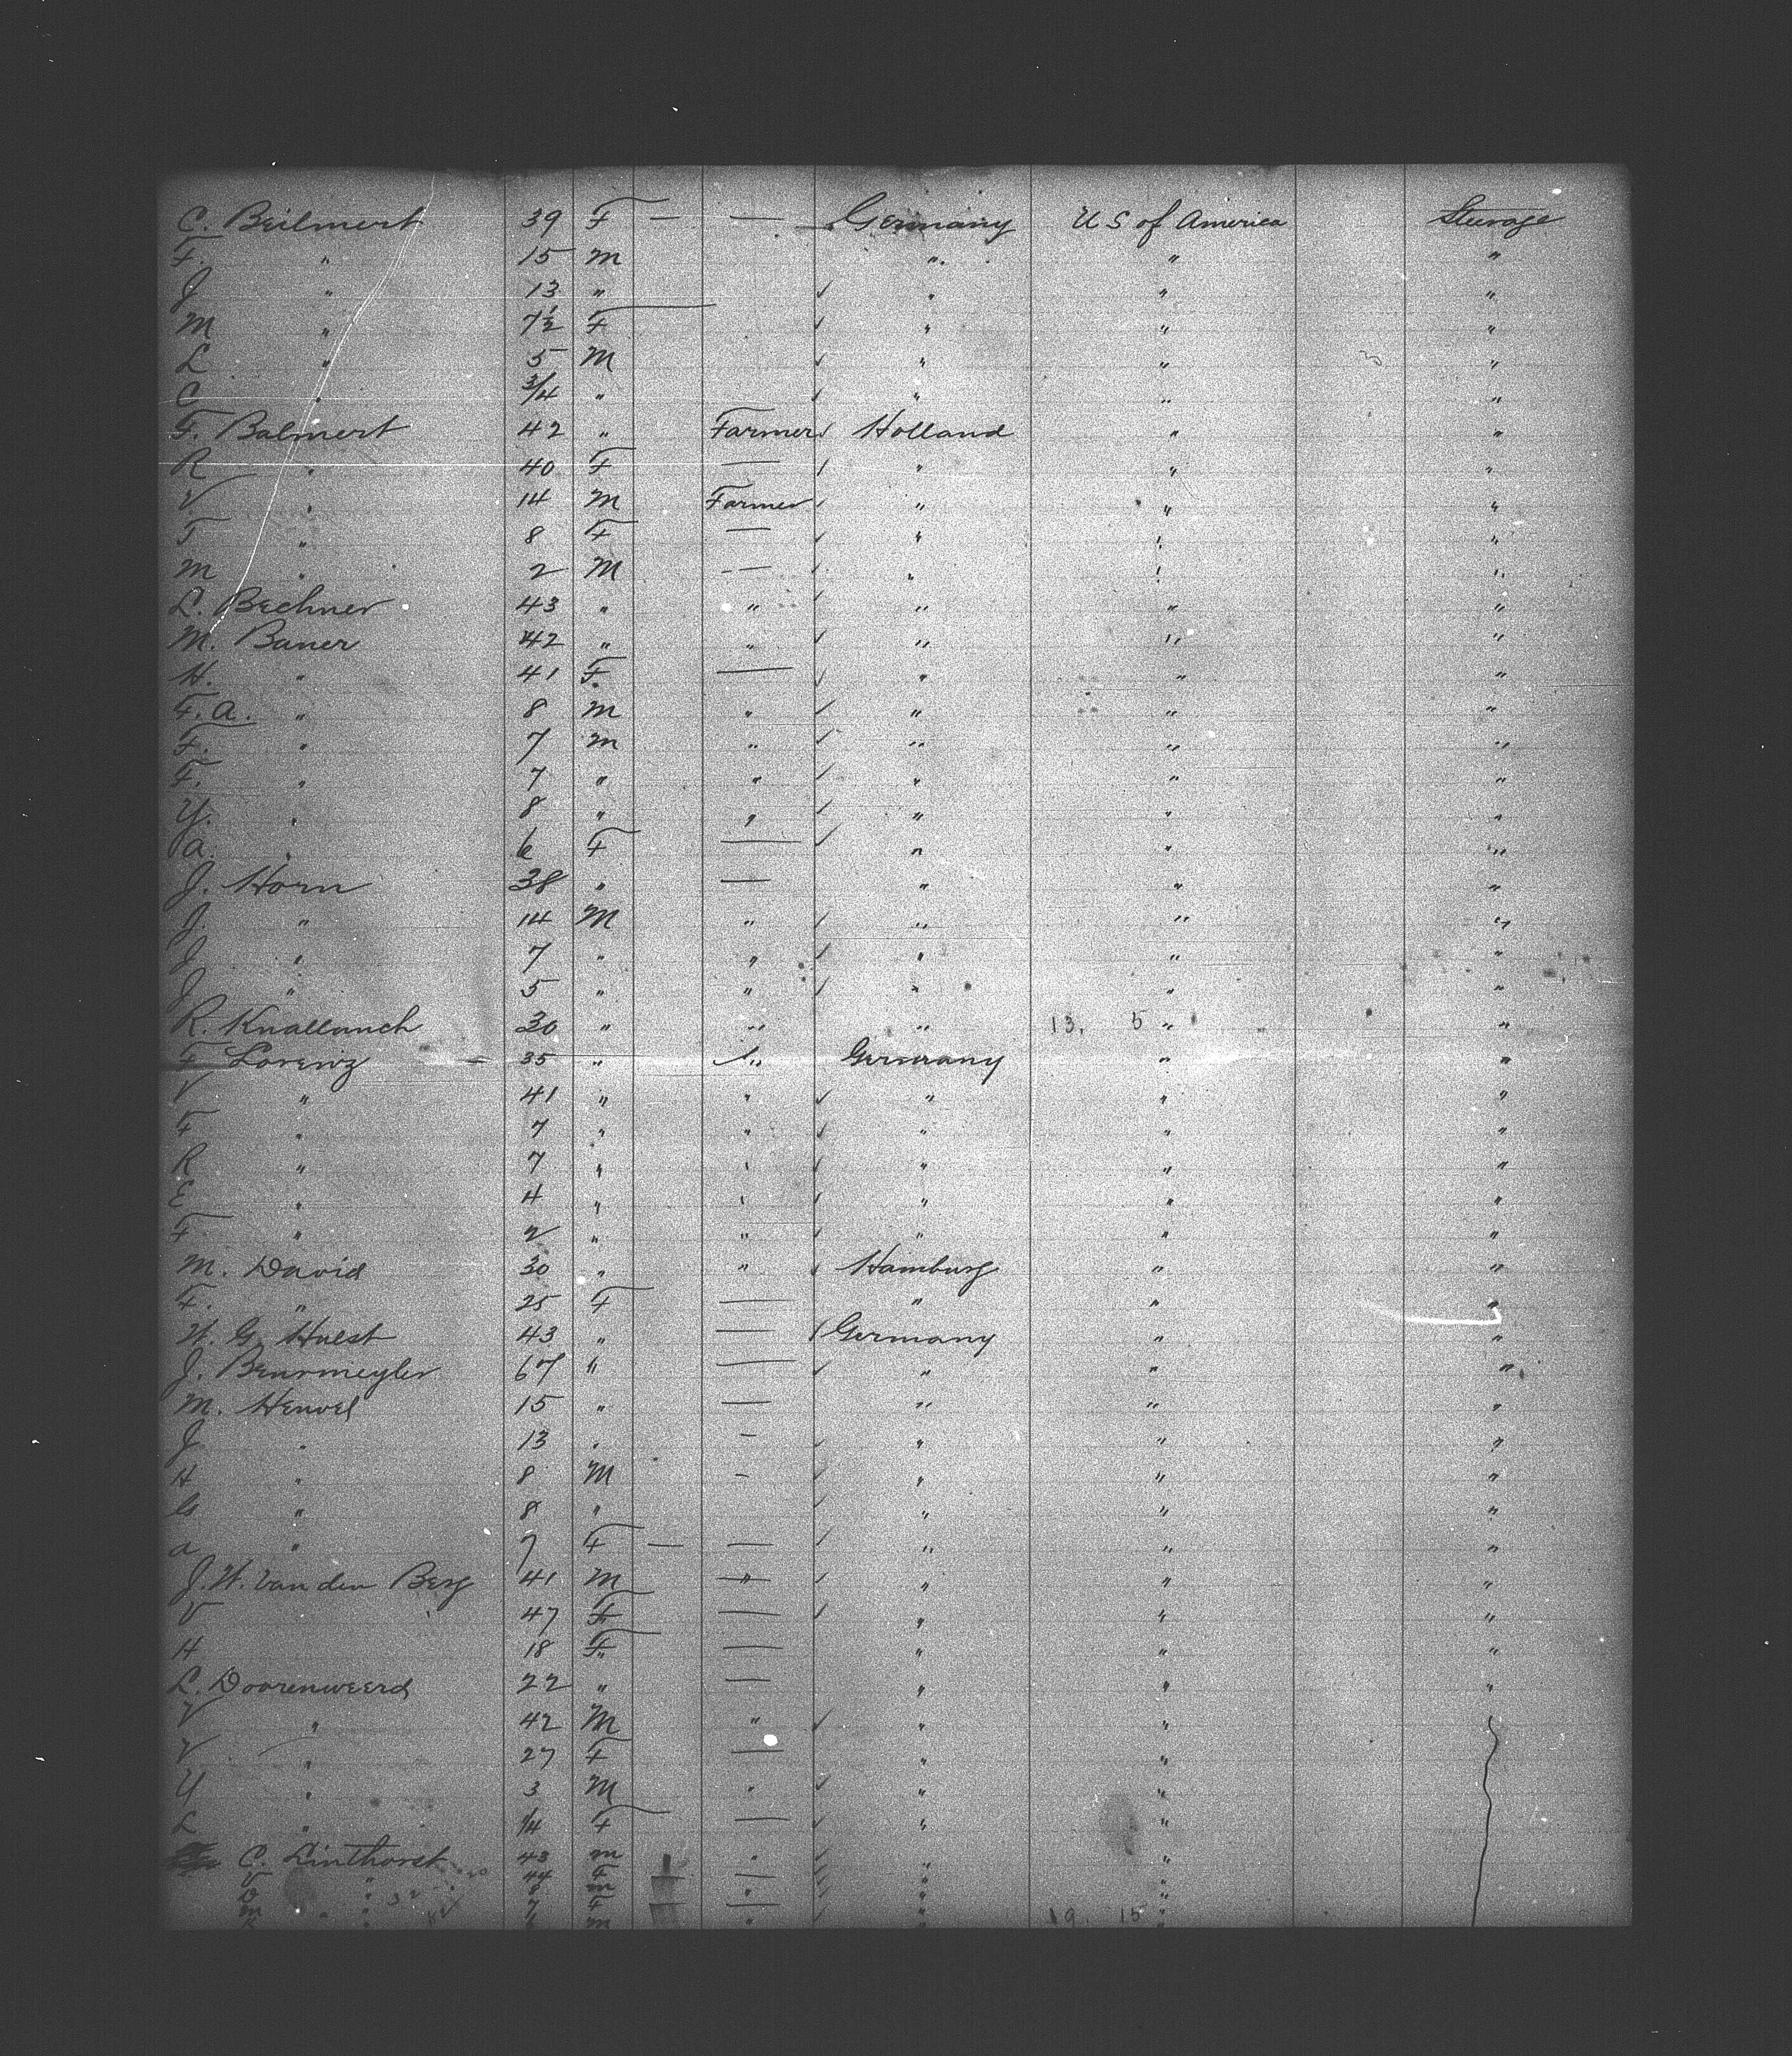 C. Beilmert 39 F — — Germany U S of America Steerage
F. " 15 m " " "
J " 13 " " " "
M " 7½ F " " "
L " 5 M " " "
C " 3/4 " " " "
F. Balmert 42 " Farmer Holland " "
R " 40 F — " " "
V " 14 M Farmer " " "
T " 8 F — " " "
M " 2 M — " " "
L. Bechner 43 " " " " "
M. Baner 42 " " " " "
H. " 41 F — " " "
F. A. " 8 M " " " "
F. " 7 m " " " "
F. " 7 " " " " "
Y. " 8 " " " " "
a. " 6 F — " " "
J. Horn 38 " — " " "
J. " 14 M " " " "
J " 7 " " " " "
J " 5 " " " " "
R. Knallanch 30 " " " 13. 5 " "
F Lorenz 35 " " Germany " "
V " 41 " " " " "
F " 7 " " " " "
R " 7 " " " " "
E " 4 " " " " "
F " 2 " " " " "
M. David 30 " " Hamburg " "
F. " 25 F — " " "
H. G. Hulst 43 " — Germany " "
J. Beurmeyler 67 " — " " "
M. Henvel 15 " — " " "
J " 13 " — " " "
H " 8 M — " " "
G " 8 " " " "
a " 7 F — — " " "
J. H. Van den Berg 41 M " " " "
V 47 F — " " "
H 18 F — " " "
L. Doorenweerd 22 " — " " "
V " 42 M " " "
V " 27 F — " "
U " 3 M " " "
L " 1/4 F — " "
C. Linthorst 43 m " " "
V " 44 F — " "
D " 8 m " " "
M " 7 F — " "
K " 6 m " " 19. 15 "